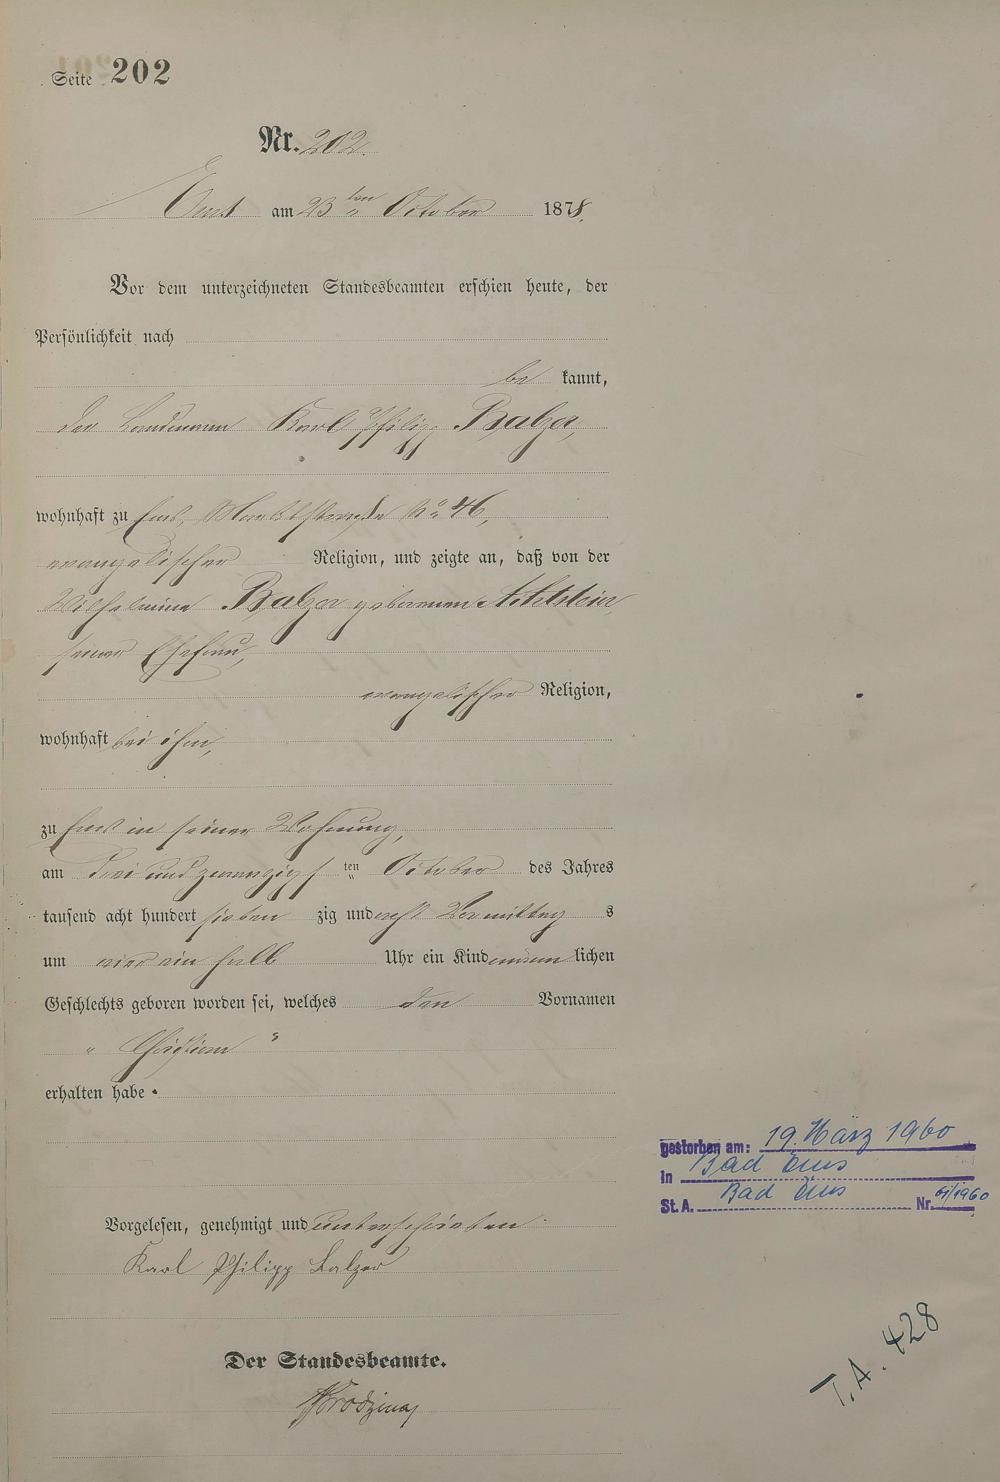 Seite 202
Nr. 202.
Ems am 23ten October 1878.
Vor dem unterzeichneten Standesbeamten erschien heute, der
Persönlichkeit nach
be kannt,
der Landmann Karl Philipp Balzer,
wohnhaft zu Ems, Marktstraße No 46,
evangelischer Religion, und zeigte an, daß von der
Wilhelmine Balzer geborenen
seiner Ehefrau,
evangelischer Religion,
wohnhaft bei ihm,
zu Ems in seiner Wohnung,
am drei und zwanzigsten October des Jahres
tausend acht hundert sieben zig und acht Vormittag s
um vier ein halb Uhr ein Kind männ lichen
Geschlechts geboren worden sei, welches den Vornamen
" Christian "
erhalten habe.
Vorgelesen, genehmigt und unterschrieben
Karl Philipp Balzer
Der Standesbeamte.
gestorben am: 19. März 1960
in Bad Ems
St.A. Bad Ems Nr. 61/1960
T.A. 428